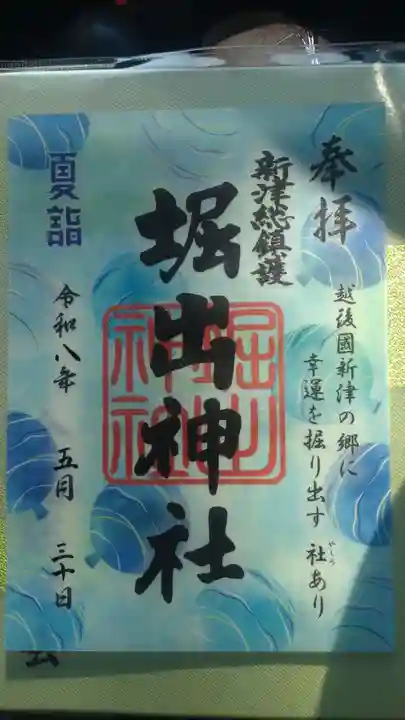 奉拝
越後國新津の郷に
幸運を掘り出す 社あり
やしろ
新津総鎮護
堀出神社
堀出
神社
夏詣
令和八年 五月 三十日